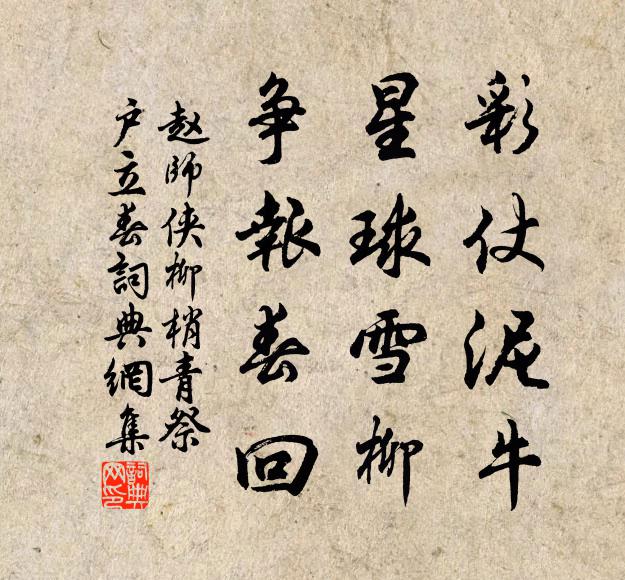 彩仗泥牛
星球雪柳
争報春回
赵師侠柳梢青祭
户立春詞典網集
詞典网印